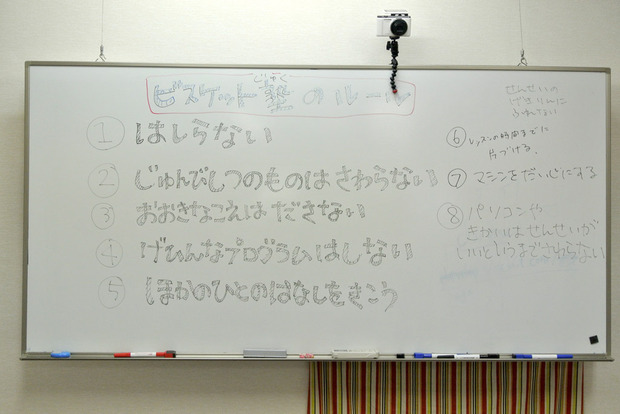 ビスケット塾のルール
じゅく
① はしらない
② じゅんびしつのものは さわらない
③ おおきなこえは ださない
④ げひんなプログラムは しない
⑤ ほかのひとのはなしをきこう
せんせいの
げきりんに
ふれない
⑥ レッスンの時間までに
片づける。
⑦ マシンをだい心にする
⑧ パソコンや
きかいはせんせいが
いいというまでさわらない